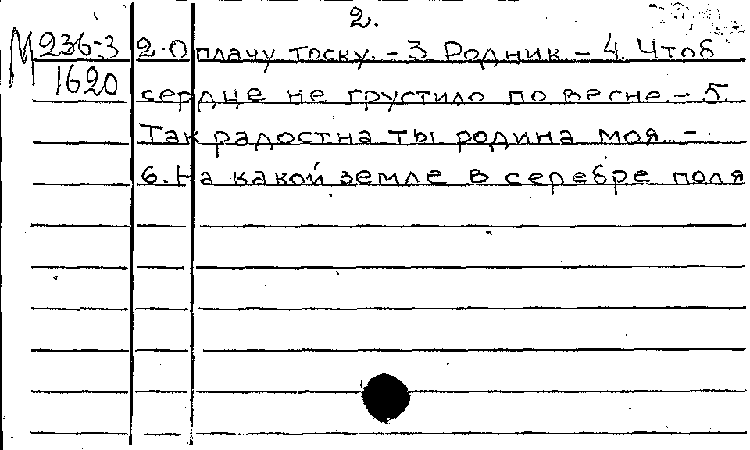 2.
М 236-3 2. Оплачу тоску. - 3 Родник - 4. Чтоб
1620 сердце не грустило по весне. - 5.
Так радостна ты родина моя -
6. На какой земле в серебре поля